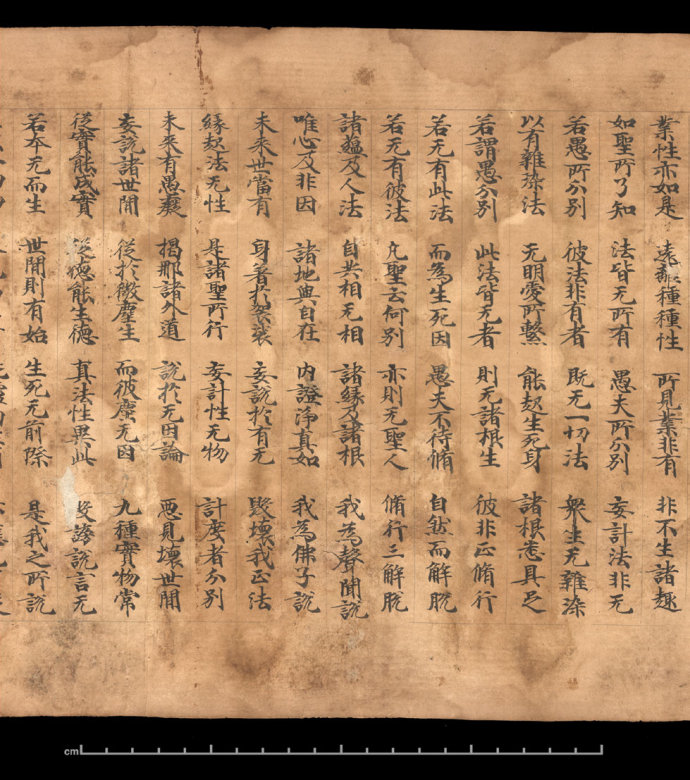 業性亦如是 遠離種種性 所見業非有 非不生諸趣
如聖所了知 法皆无所有 愚夫所分別 妄計法非无
若愚所分別 彼法非有者 既无一切法 衆生无雜染
以有雜染法 无明愛所繫 能起生死身 諸根悉具足
若謂愚分別 此法皆无者 則无諸根生 彼非正脩行
若无有此法 而為生死因 愚夫不待脩 自然而解脫
若无有彼法 凡聖云何別 亦則无聖人 脩行三解脫
諸蘊及人法 自共相无相 諸緣及諸根 我為聲聞說
唯心及非因 諸地與自在 內證淨真如 我為佛子說
未來世當有 身著於袈裟 妄說於有无 毀壞我正法
緣起法无性 是諸聖所行 妄計性无物 計度者分別
未來有愚癡 揭那諸外道 說於无因論 惡見壞世間
妄說諸世間 從於微塵生 而彼塵无因 九種實物常
從實能成實 從德能生德 真法性異此 毀謗說言无
若本无而生 世間則有始 生死无前際 是我之所說